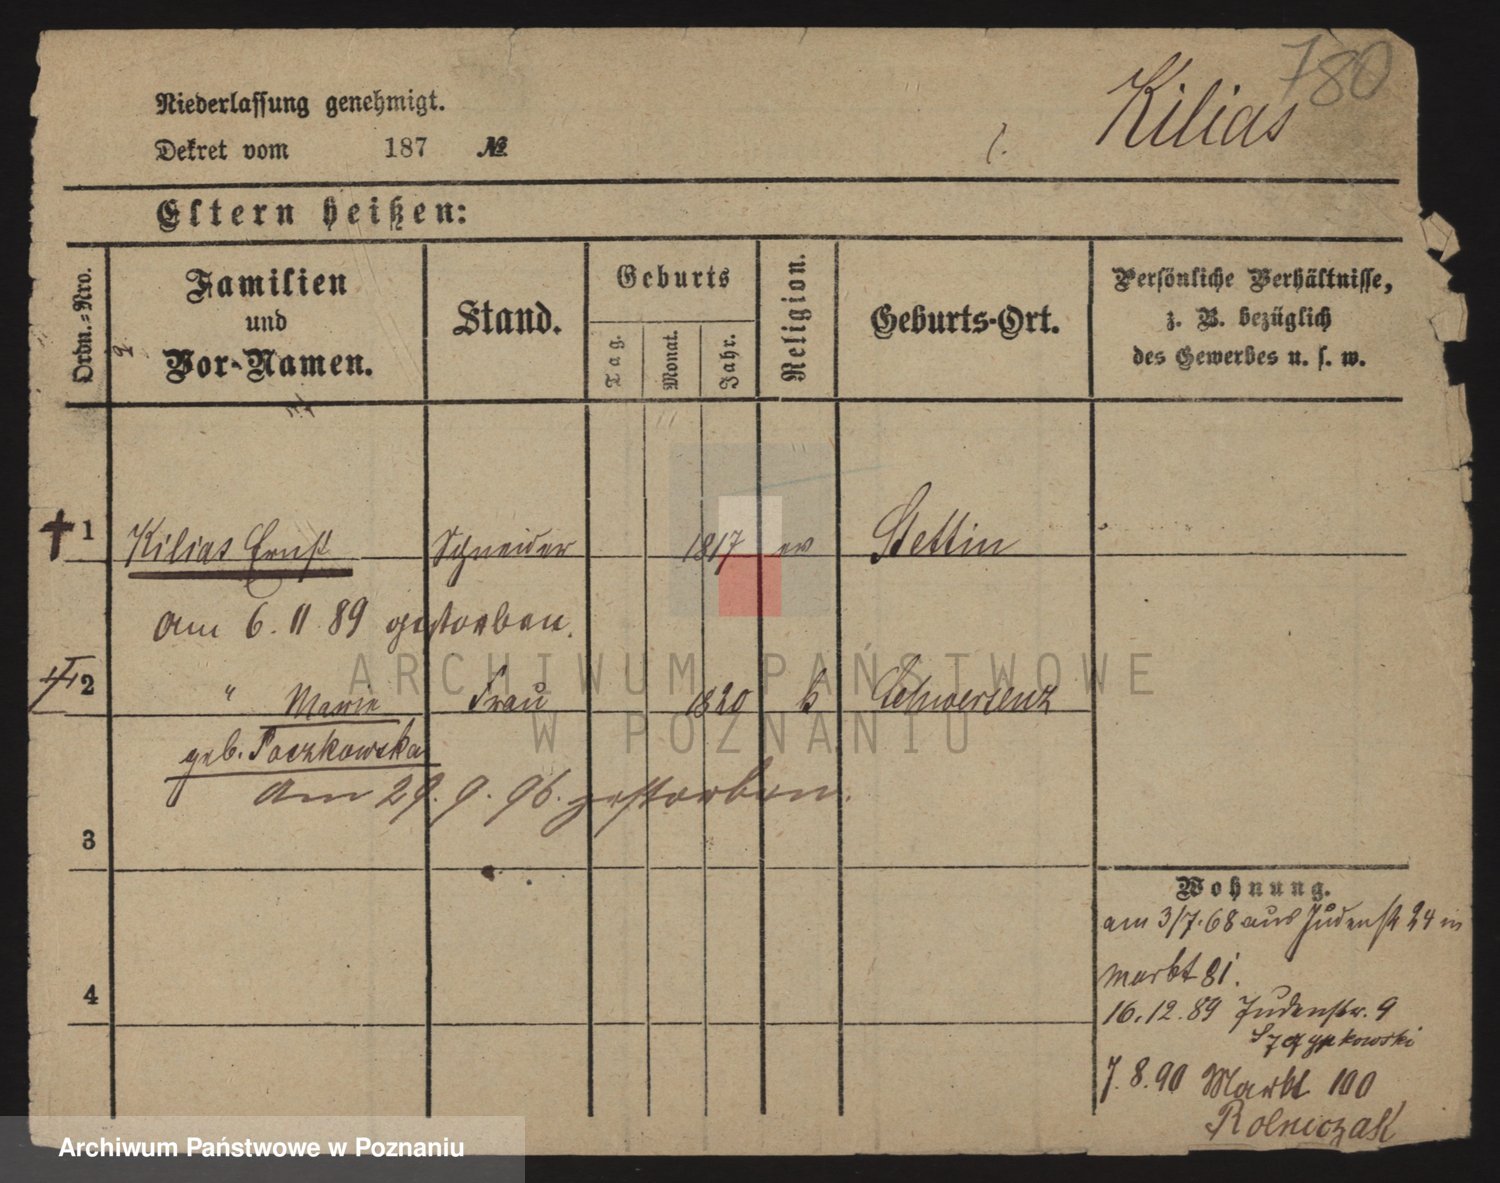 780
Kilias
Niederlassung genehmigt.
Dekret vom 187 №
Eltern heißen:
Ordn.=Nro.
Familien
und
Vor-Namen.
Stand.
Geburts
Tag.
Monat.
Jahr.
Religion.
Geburts-Ort.
Persönliche Verhältnisse,
z. B. bezüglich
des Gewerbes u. s. w.
1 Kilias Ernst Schneider 1817 ev Stettin
am 6. 11. 89 gestorben.
2 " Marie Frau 1820 k Schwersenz
geb. Poczkowska
am 29. 9. 96. gestorben.
3
4
Wohnung.
am 3/7. 68 aus Judenstr 24 in
Markt 81.
16. 12. 89 Judenstr. 9
7. 8. 90 Markt 100
Rolniczak
ARCHIWUM PAŃSTWOWE
W POZNANIU
Archiwum Państwowe w Poznaniu